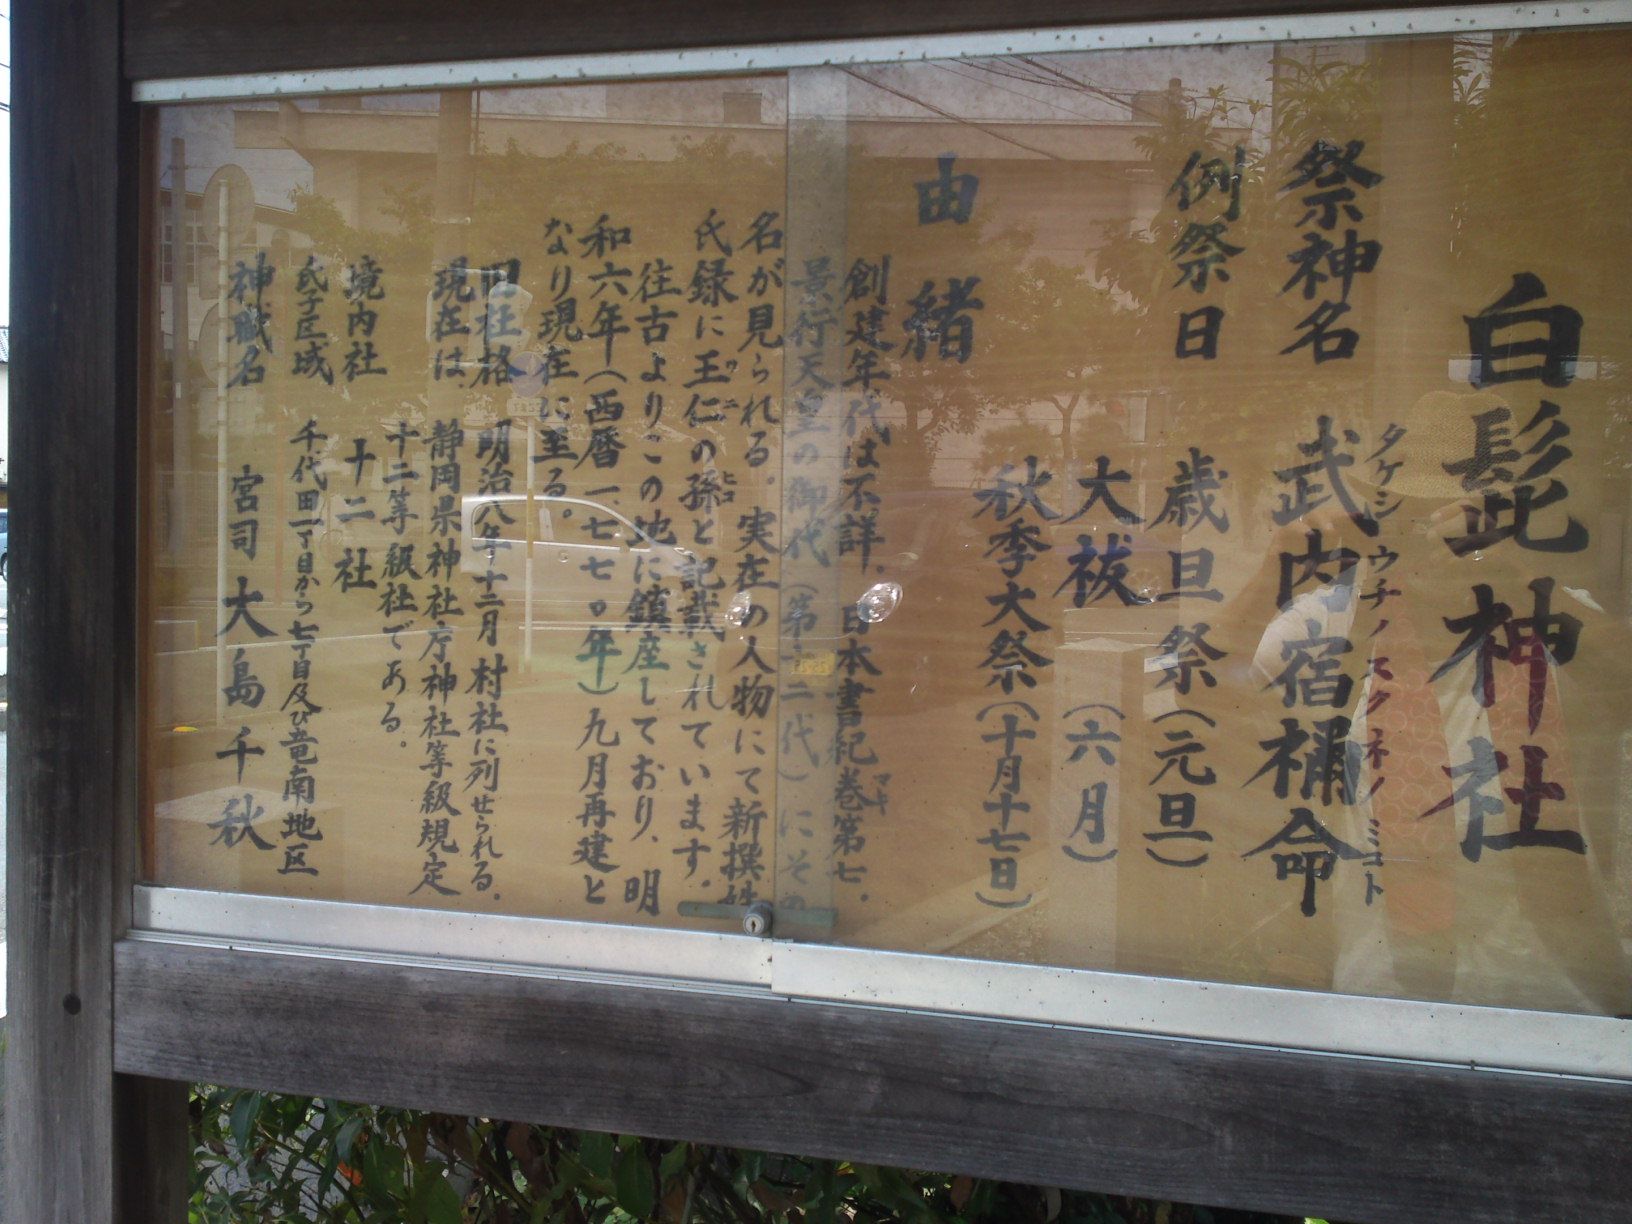 白髭神社
祭神名 武内宿禰命
タケシ ウチノ スクネノ ミコト
例祭日 歳旦祭(元旦)
大祓 (六月)
秋季大祭(十月十七日)
由緒
創建年代は不詳、日本書紀巻第七、
マキ
景行天皇の御代(第十二代)にその
名が見られる。実在の人物にて新撰姓
氏録に王仁の孫と記載されています。
ワニ ヒコ
往古よりこの地に鎮座しており、明
和六年(西暦一、七七〇年)九月再建と
なり現在に至る。
旧社格 明治八年十二月 村社に列せられる。
現在は、静岡県神社庁神社等級規定
十二等級社である。
境内社 十二社
氏子区域 千代田一丁目から七丁目及び竜南地区
神職名 宮司 大島千秋